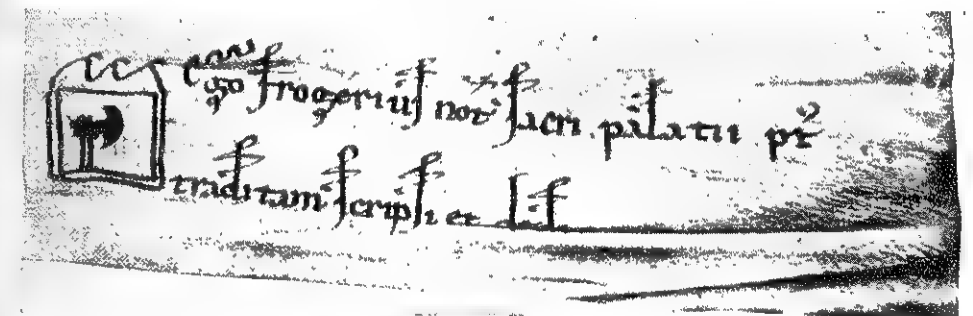 Ego frogerius not sacri palatii pt
traditam scripsi et